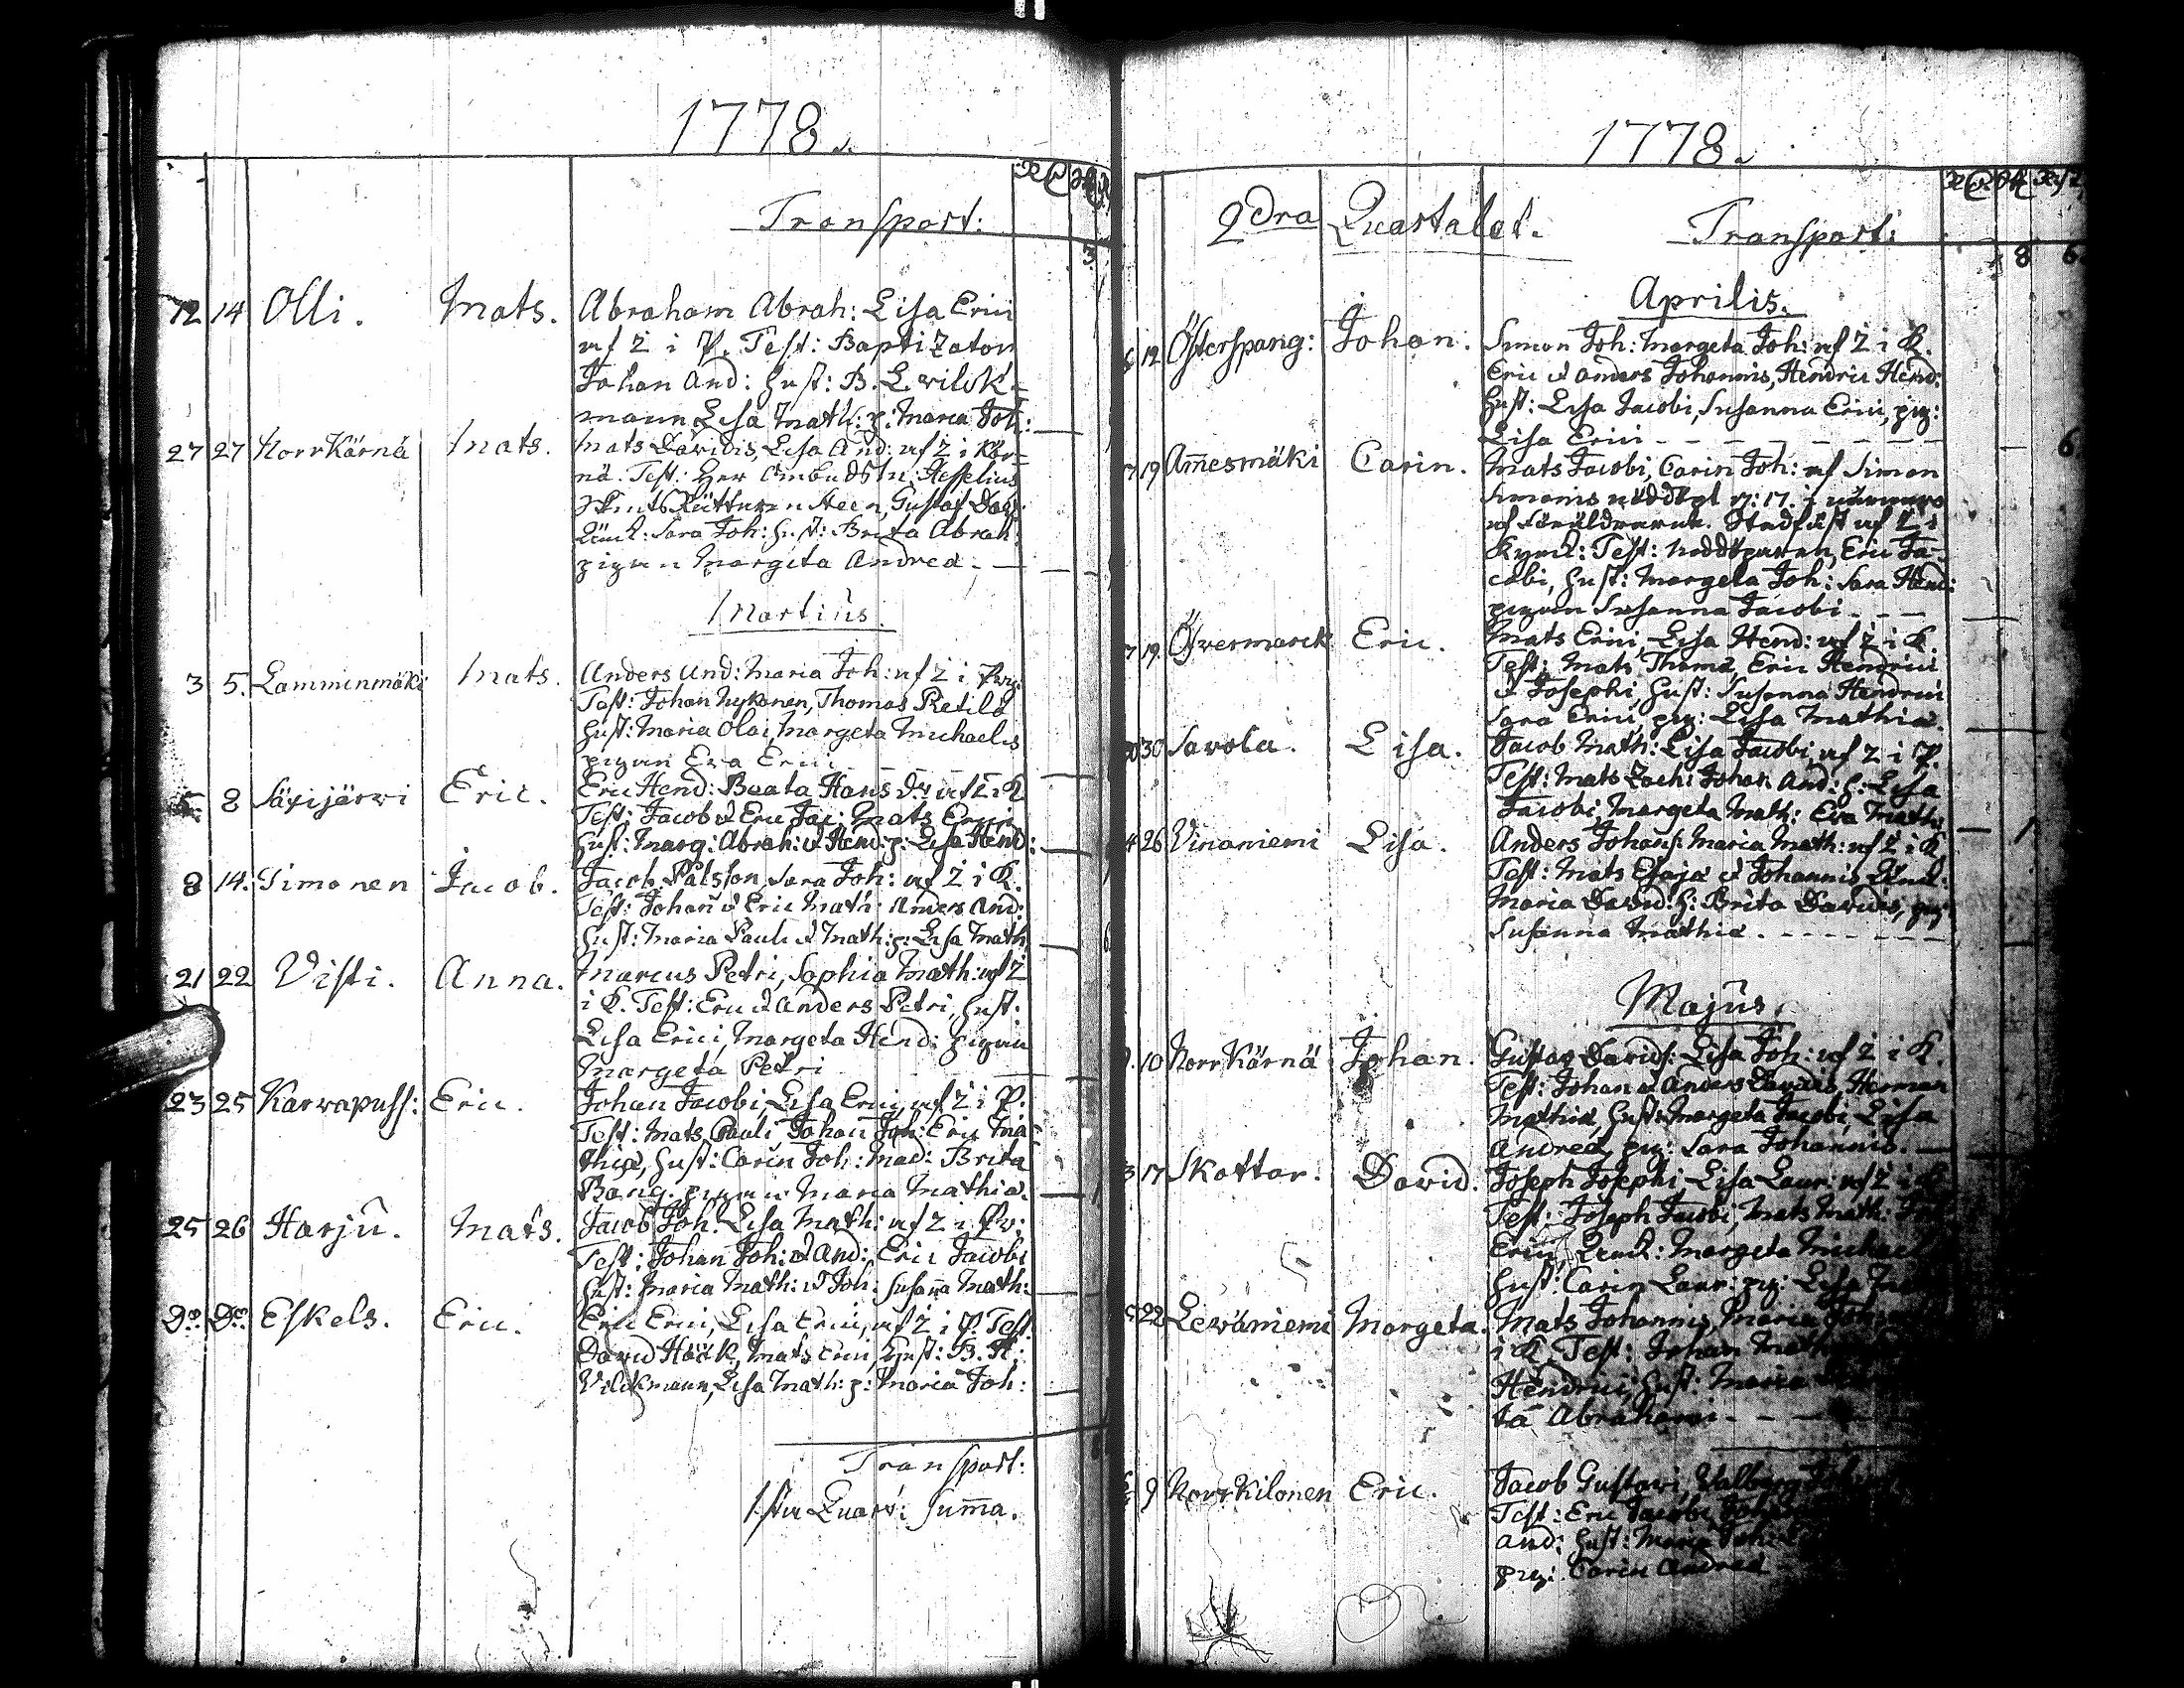 1778.
Transport:
3
12 14 Olli. Mats. Abraham Abrah: Lisa Erici
af 2 i P. Test: Baptizator
Johan And: Hust: B. L. wilck=
mann Lisa Math: p: Maria Joh:
27 27 Norrkärnä Mats. Mats Davidis, Lisa And: af 2 i Kär=
nä. Test: Herr Hesselius
Gustaf
Sara Joh: H: Brita Abrah:
pigan Margeta Andreæ.
Martius.
3 5. Lamminmäki Mats. Anders And: Maria Joh: af 2 i
Test: Johan Nykänen, Thomas
Hust: Maria Olai, Margeta Michaelis
pigan Eva Erici
5 8 Säxijärvi Eric. Eric Hend: Beata Hans dr af 2 i K
Test: Jacob & Eric Jac: Mats Erici
Hust: Marg: Abrah: & Hend: p: Lisa Hend:
8 14. Timonen Jacob. Jacob Pålsson, Sara Joh: af 2 i K.
Test: Johan & Eric Math: Anders And:
Hust: Maria Pauli & Math: p: Lisa Math
21 22 Visti. Anna. Marcus Petri, Sophia Math: af 2
i K. Test: Eric & Anders Petri, Hust:
Lisa Erici, Margeta Hend: pigan
Margeta Petri
23 25 Karvapuss: Eric. Johan Jacobi, Lisa Erici, af 2 i P.
Test: Mats Pauli, Johan Joh: Eric Ma
thiæ, Hust: Carin Joh: Mad: Brita
Bang. pigan Maria Mathiæ.
25 26 Harju. Mats. Jacob Joh: Lisa Math: af 2 i
Test: Johan Joh: & And: Eric Jacobi
Hust: Maria Math: & Joh: Susan̄a Math:
Do. Do. Eskels. Eric. Eric Erici, Lisa Erici, af 2 i P. Test
David Höök, Mats Erici, Hust: B. H:
Vilckmann, Lisa Math: p: Maria Joh:
Transport:
1sta Quart: Sum̄a.
1778.
2dra Quartalet. Transport:
8 6.
Aprilis.
12 Österspång: Johan. Simon Joh: Margeta Joh: af 2 i K.
Eric & Anders Johannis, Hendric Hend:
Hust: Lisa Jacobi, Susanna Erici, pig:
Lisa Erici
6.
19 Am̄esmäki Carin. Mats Jacobi, Carin Joh: af Simon
Simonis nöddöpt d: 17. i närwaro
af Föräldrarne. Stadfäst af 2 i
Kyrck: Test: Nöddöparen, Eric Ja=
cobi, Hust: Margeta Joh: Sara Hend:
pigan Susanna Jacobi
19 Öfvermarck Eric. Mats Erici, Lisa Hend: af 2 i K.
Test: Mats Thomæ, Eric Hendrici
& Josephi, Hust: Susanna Hendrici
Sara Erici, pig: Lisa Mathiæ.
30 Savola. Lisa. Jacob Math: Lisa Jacobi, af 2 i P.
Test: Mats Zach: Johan And: H: Lisa
Jacobi, Margeta Math: Eva Math:
26 Vinaniemi Lisa. Anders Johans: Maria Math: af 2 i K
Test: Mats Esajæ & Johannis
Maria David: H: Brita Davidis, pig:
Susanna Mathiæ.
Majus.
10 Norrkärnä Johan. Gustav Davids: Lisa Joh: af 2 i K.
Test: Johan & Anders Davidis, Herman
Mathiæ, Hust: Margeta Jacobi, Lisa
Andreæ, pig: Sara Johannis.
17 Skattar. David. Joseph Josephi Lisa Laur: af 2 i K
Test: Joseph Jacobi, Mats Math:
Erici, Margeta Michael
Hust: Carin Laur: pig: Lisa
22 Leväniemi Margeta. Mats Johannis, Maria Joh
i K. Test: Johan Math
Hendrici, Hust: Maria
ta Abrahami
9 Norrkilonen Eric. Jacob Gustavi, Valborg
Test: Eric Jacobi,
And: Hust: Maria Joh:
pig: Carin Andreæ